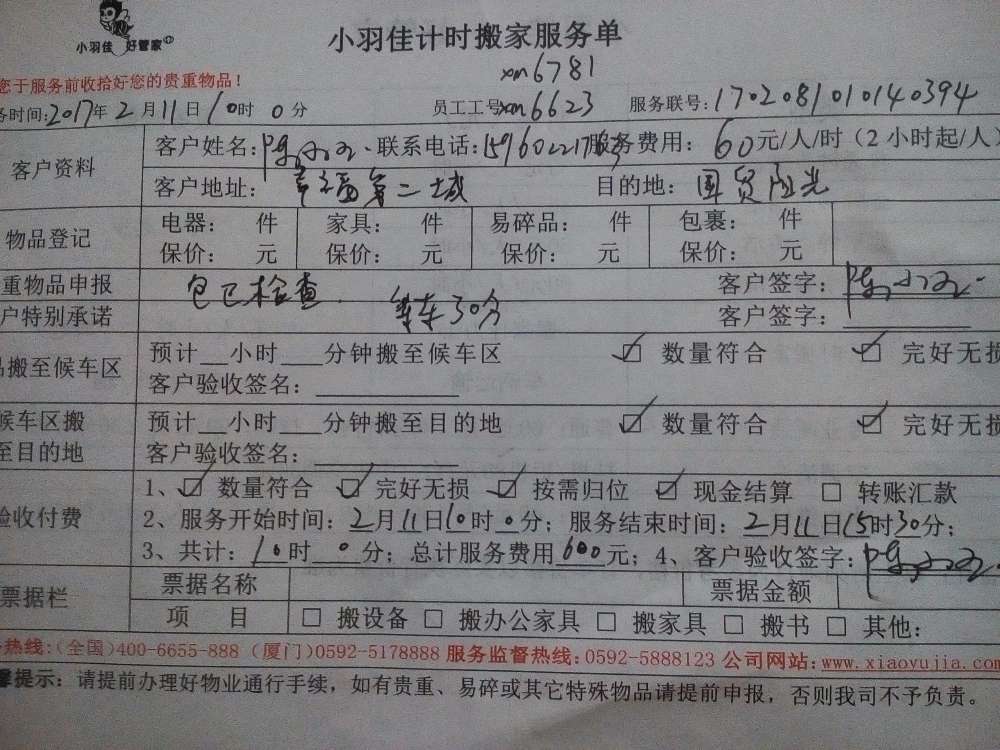 小羽佳 好管家
小羽佳计时搬家服务单
您于服务前收拾好您的贵重物品！
xm6781
务时间：2017年2月11日10时0分 员工工号：xm6623 服务联号：170208101040394
客户资料 客户姓名： 联系电话： 服务费用：60元/人/时（2小时起/人）
客户地址：第二城 目的地：国贸阳光
物品登记 电器： 件 家具： 件 易碎品： 件 包裹： 件
保价： 元 保价： 元 保价： 元 保价： 元
重物品申报 包已检查 客户签字：
户特别承诺 等车30分 客户签字：
品搬至候车区 预计__小时___分钟搬至候车区 ☑ 数量符合 ☑ 完好无损
客户验收签名：
候车区搬至目的地 预计__小时___分钟搬至目的地 ☑ 数量符合 ☑ 完好无损
客户验收签名：
验收付费 1、☑ 数量符合 ☑ 完好无损 ☑ 按需归位 ☑ 现金结算 □ 转账汇款
2、服务开始时间：2月11日10时0分；服务结束时间：2月11日15时30分；
3、共计：10时0分；总计服务费用600元；4、客户验收签字：
票据栏 票据名称 票据金额
项 目 □ 搬设备 □ 搬办公家具 □ 搬家具 □ 搬书 □ 其他：
务热线：(全国)400-6655-888 (厦门)0592-5178888 服务监督热线：0592-5888123 公司网站：www.xiaoyujia.com
馨提示：请提前办理好物业通行手续，如有贵重、易碎或其它特殊物品请提前申报，否则我司不予负责。